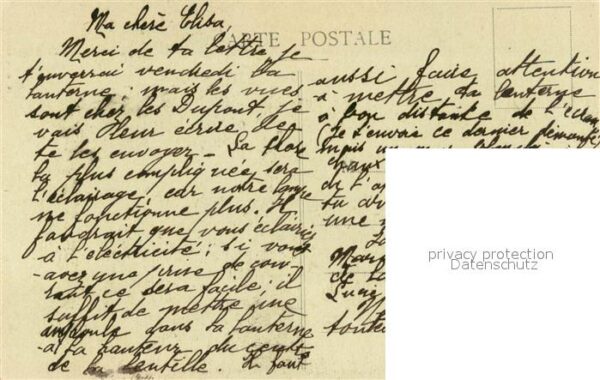 Ma chère Elisa,
CARTE POSTALE
Merci de ta lettre, je
t'enverrai vendredi la
lanterne; mais les vues
sont chez les Dupont, je
vais leur écrire de
te les envoyer - La chose
la plus compliquée sera
l'éclairage, car notre lampe
ne fonctionne plus. Il
faudrait que vous éclairiez
à l'électricité; si vous
avez une prise de cou-
rant ce sera facile; il
suffit de mettre une
ampoule dans la lanterne
à la hauteur du centre
de la lentille. Il faut
aussi faire attention
à mettre la lanterne
à bon distante de l'écran
(Je t'envoie ce dernier démonté
mais un
chaux
de l'a
tu av
une
de la
Lucie
toute
privacy protection
Datenschutz